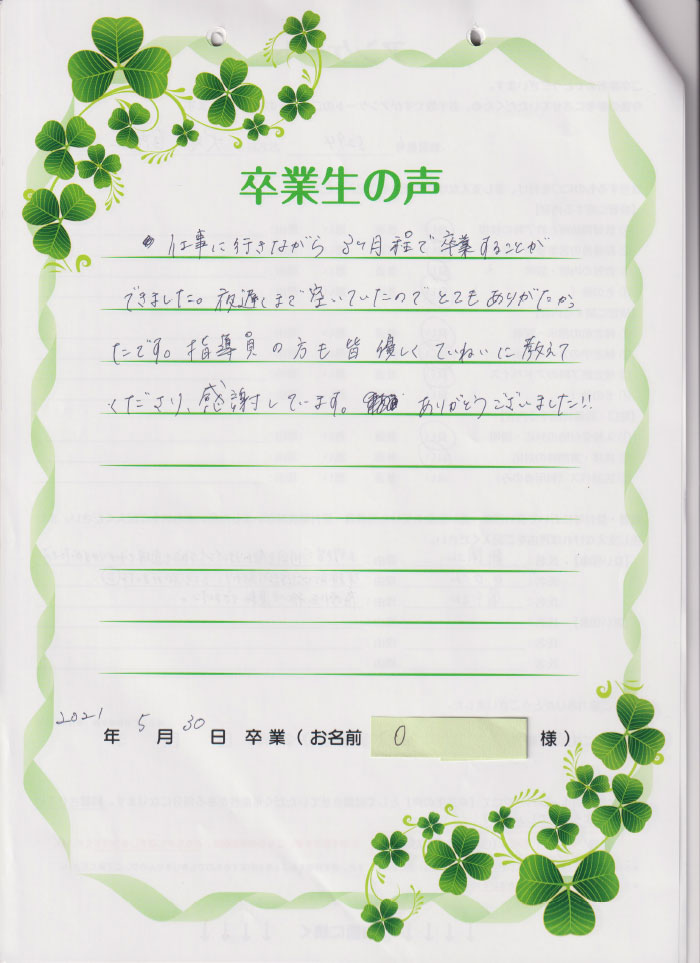 卒業生の声
仕事に行きながら 3ヶ月程で卒業することが
できました。夜遅くまで空いていたのでとてもありがたかっ
たです。指導員の方も皆優しくていねいに教えて
くださり、感謝しています。 ありがとうございました!!
2021年 5月 30日 卒業(お名前 O 様)